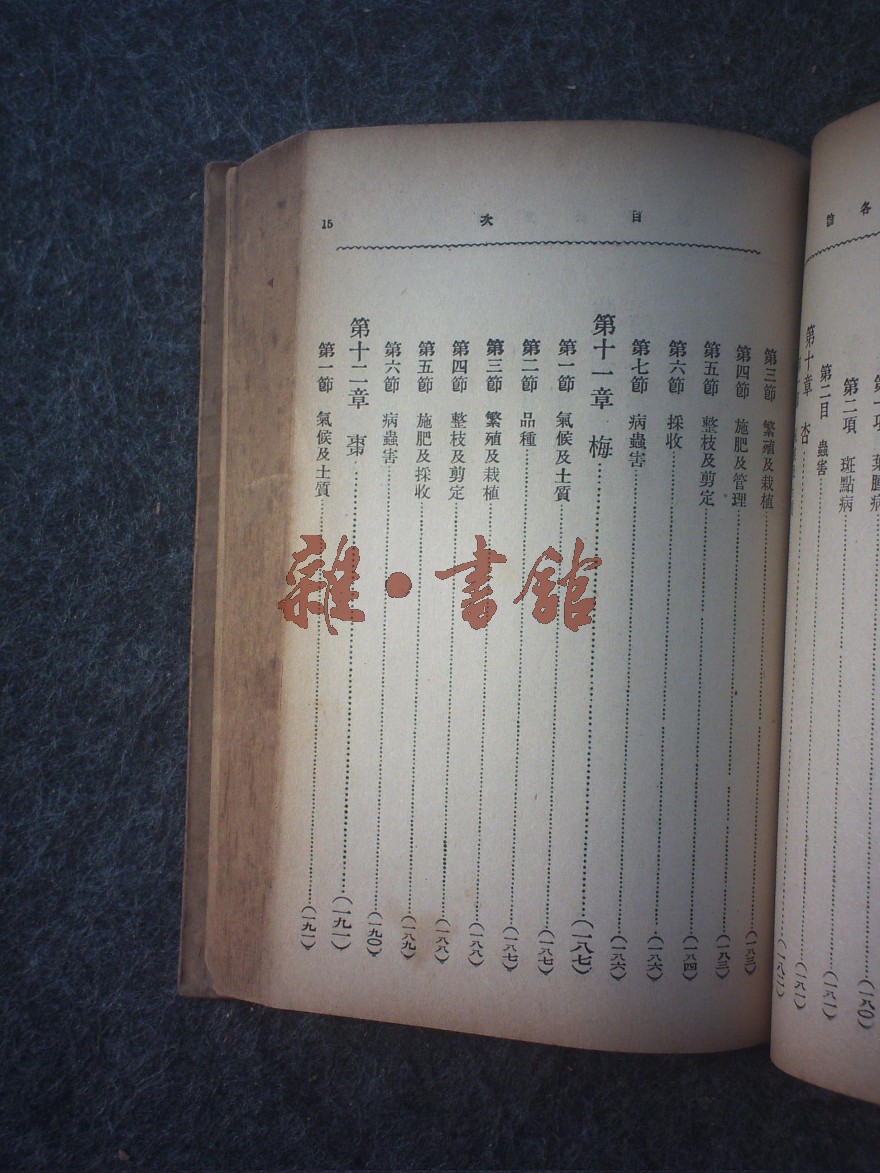 各
第一項 葉腫病……(一八〇)
第二項 斑點病……(一八一)
第二目 蟲害……(一八一)
第十章 杏……(一八二)
目次 15
第三節 繁殖及栽植……(一八三)
第四節 施肥及管理……(一八三)
第五節 整枝及剪定……(一八四)
第六節 採收……(一八六)
第七節 病蟲害……(一八六)
第十一章 梅……(一八七)
第一節 氣候及土質……(一八七)
第二節 品種……(一八七)
第三節 繁殖及栽植……(一八八)
第四節 整枝及剪定……(一八八)
第五節 施肥及採收……(一八九)
第六節 病蟲害……(一九〇)
第十二章 棗……(一九一)
第一節 氣候及土質……(一九一)
雜·書館